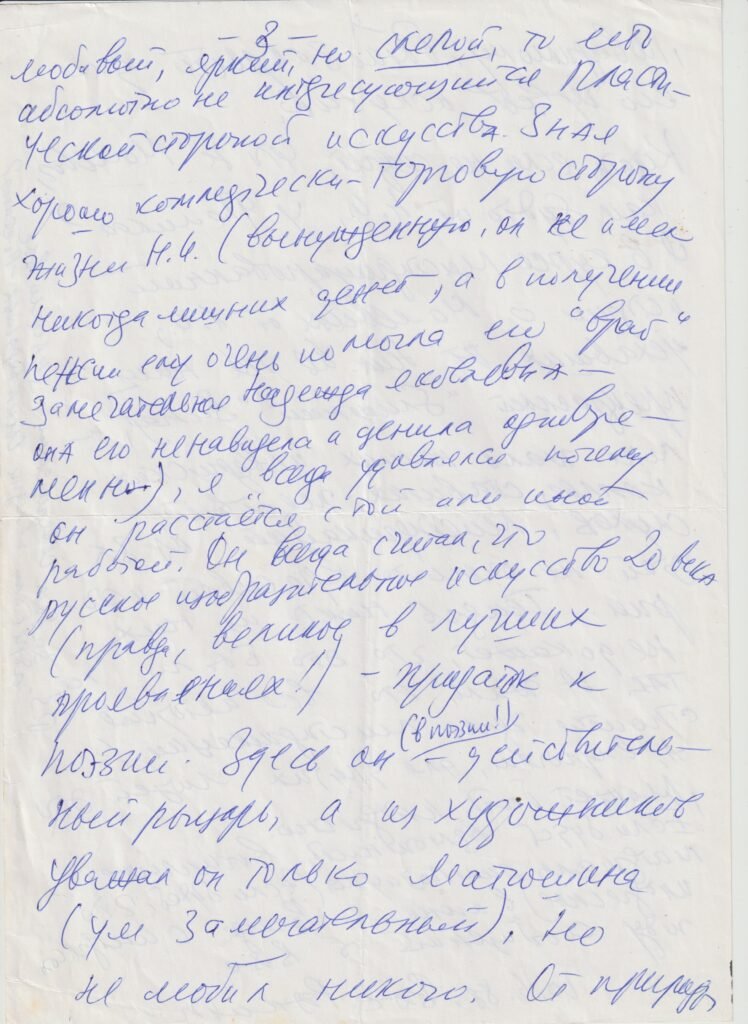 – 3 –
любивый, яркий, но слепой, то есть
абсолютно не интересующийся пласти-
ческой стороной искусства. Зная
хорошо комедически-торговую сторону
жизни Н.И. (вынужденную, он не имел
никогда лишних денег, а в получении
пенсии ему очень помогла его "враг"
замечательная Надежда Яковлевна –
она его ненавидела и ценила одновре-
менно), я всегда удивлялся почему
он расстаётся с той или иной
работой. Он всегда считал, что
русское изобразительное искусство 20 века
(правда, великое в лучших
проявлениях!) – придаток к
поэзии. Здесь он (в поэзии!) – действитель-
ный рыцарь, а из художников
уважал он только Матюшина
(ум замечательный), но
не любил никого. От природы